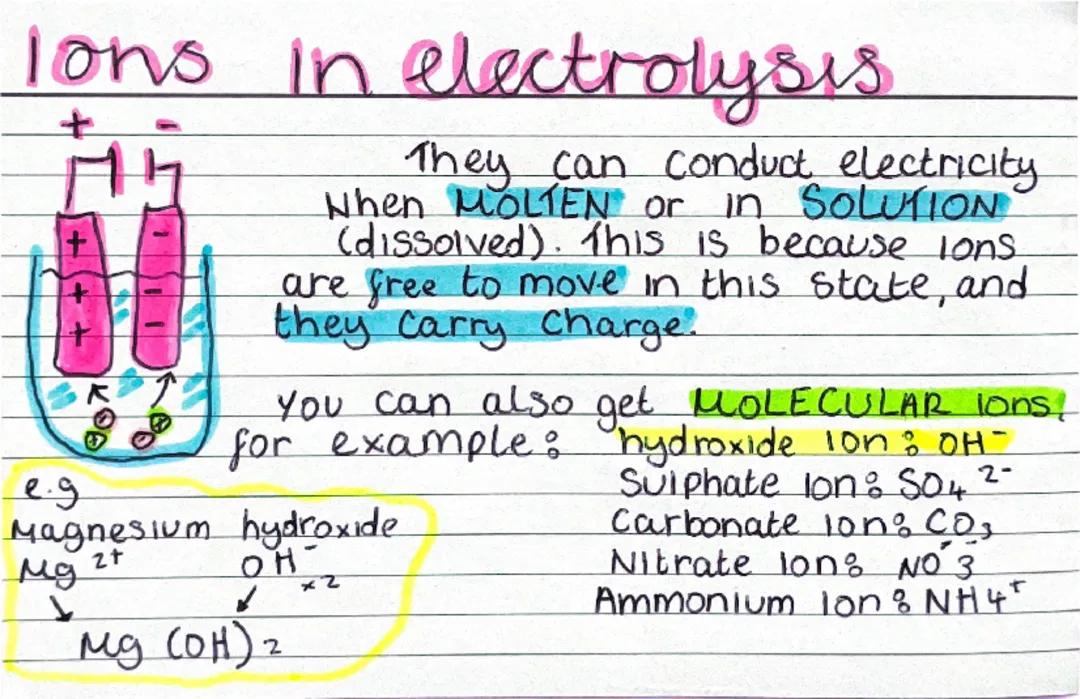 Ions in electrolysis
+ -
They can conduct electricity
when MOLTEN or in SOLUTION
(dissolved). This is because ions
are free to move in this state, and
they carry charge.
+ -
+ -
+ -
You can also get MOLECULAR ions,
for example: hydroxide ion: OH⁻
Sulphate ion: SO₄ ²⁻
Carbonate ion: CO₃
Nitrate ion: NO⁻3
Ammonium ion: NH4⁺
e.g
Magnesium hydroxide
Mg ²⁺ OH⁻ ×2
Mg (OH)₂